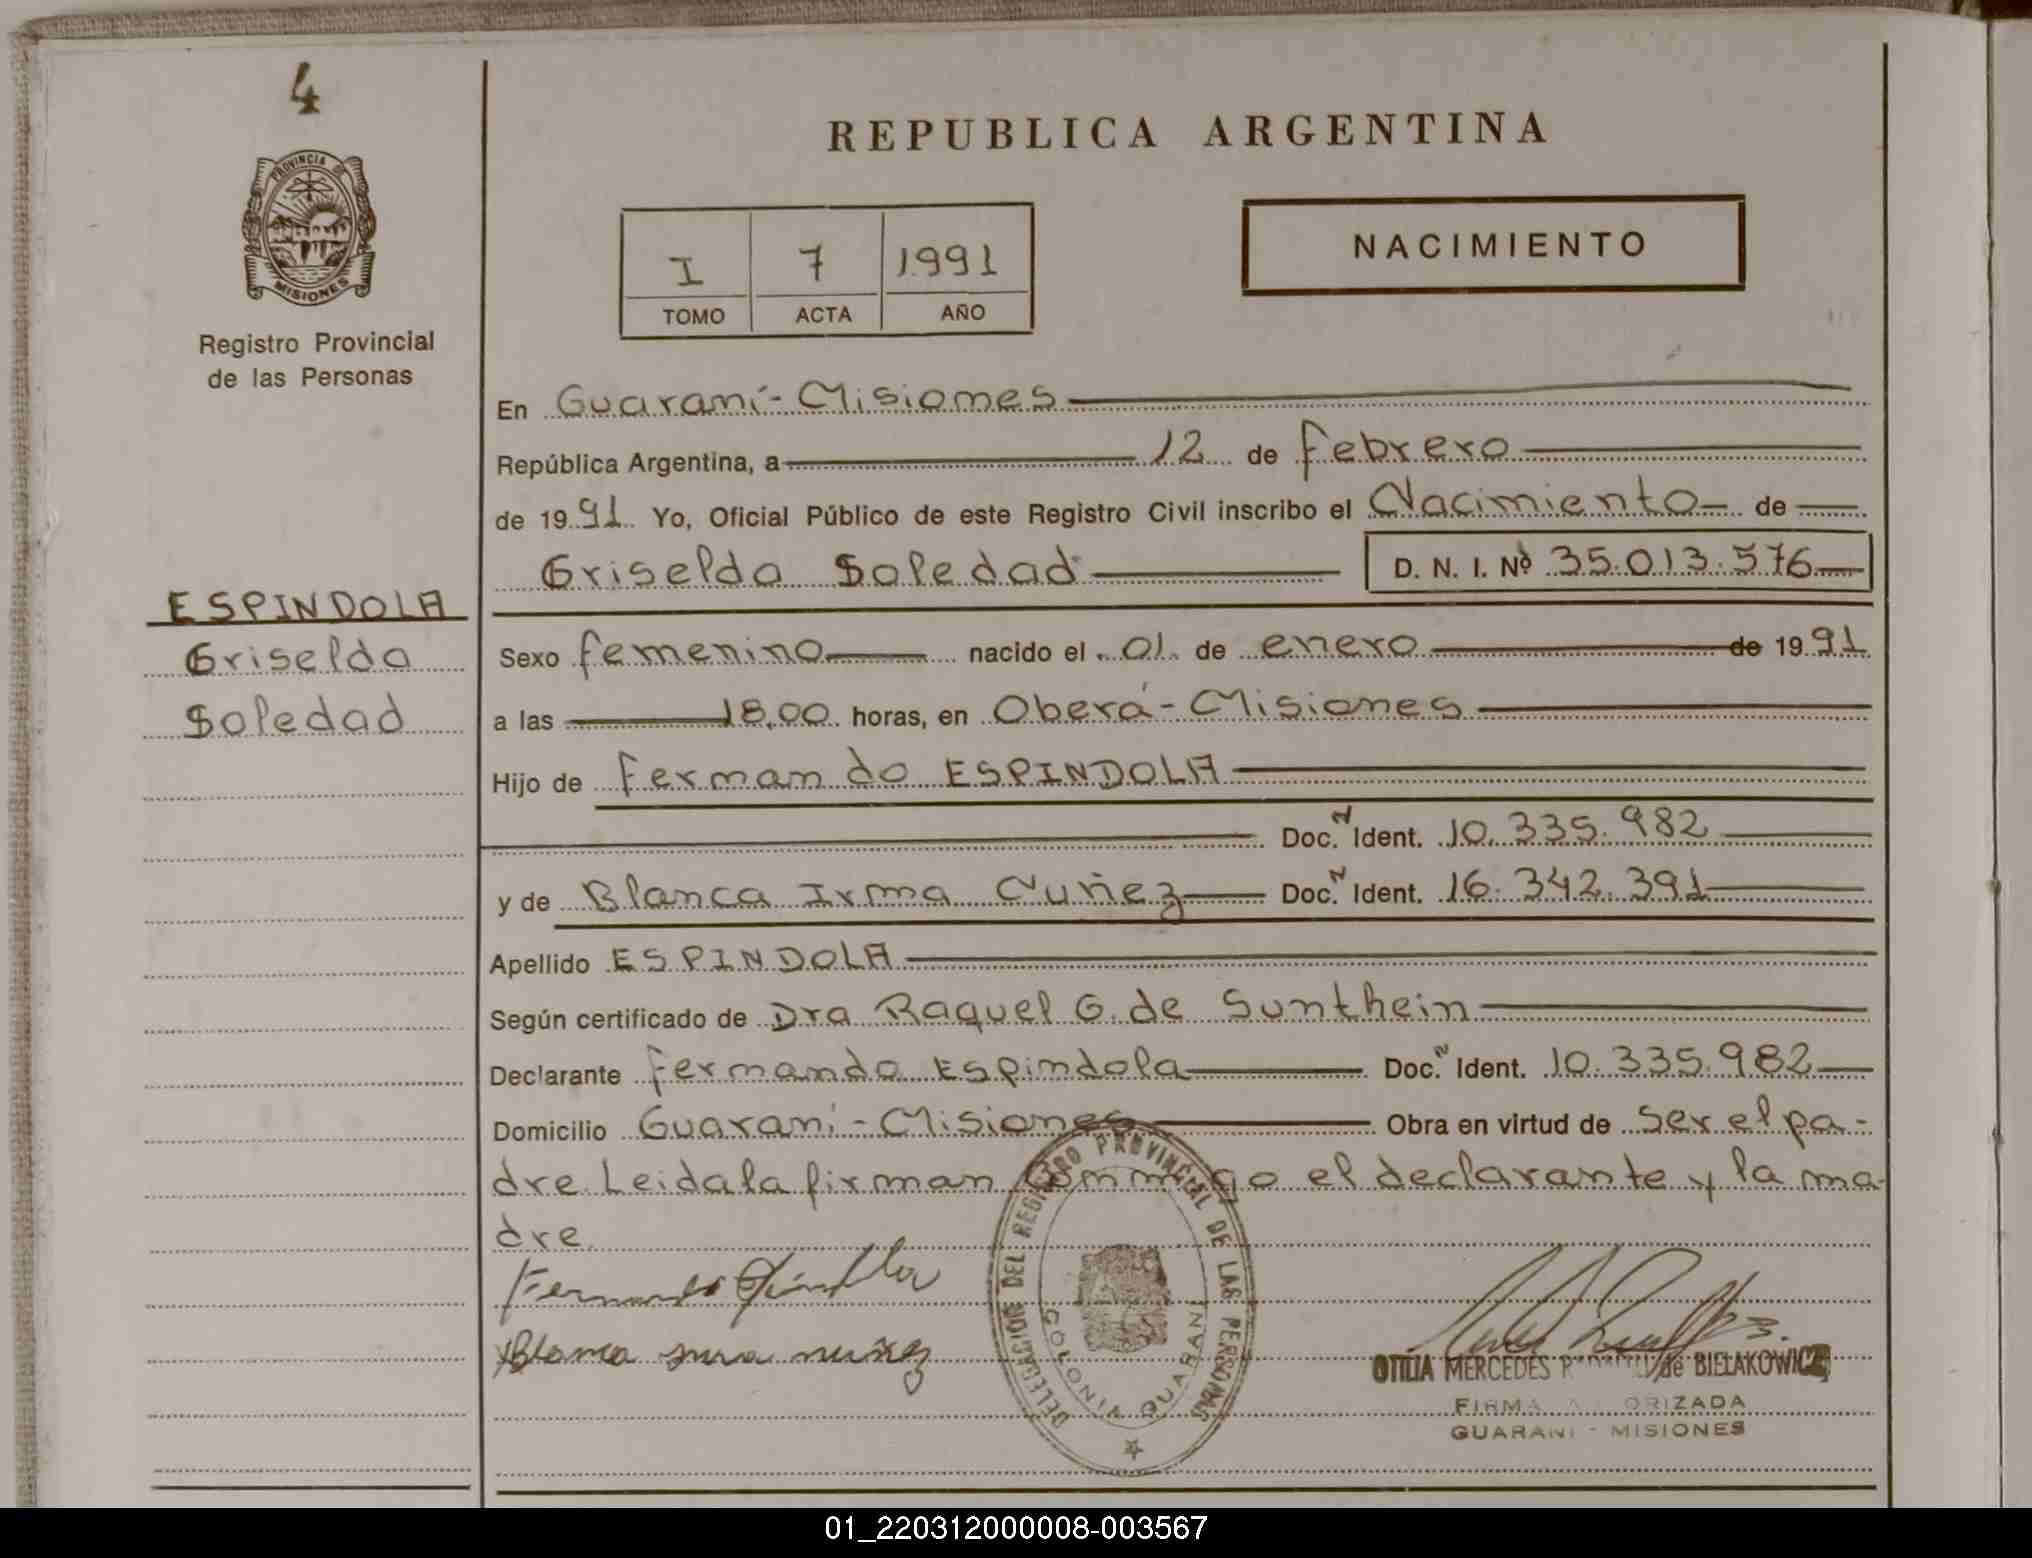 4
PROVINCIA DE
MISIONES
Registro Provincial
de las Personas
ESPINDOLA
Griselda
Soledad
REPUBLICA ARGENTINA
I 7 1991
TOMO ACTA AÑO
NACIMIENTO
En Guaraní-Misiones
República Argentina, a 12 de febrero
de 1991 Yo, Oficial Público de este Registro Civil inscribo el Nacimiento de
Griselda Soledad D. N. I. Nº 35.013.576
Sexo femenino nacido el 01 de enero de 1991
a las 18,00 horas, en Oberá-Misiones
Hijo de Fernando ESPINDOLA
Doc. N Ident. 10.335.982
y de Blanca Irma Nuñez Doc. N Ident. 16.342.391
Apellido ESPINDOLA
Según certificado de Dra Raquel G. de Sunthein
Declarante Fernando Espindola Doc. N Ident. 10.335.982
Domicilio Guaraní-Misiones Obra en virtud de ser el pa-
dre. Leidala firman conmigo el declarante y la ma-
dre.
Fernando Espindola
Blanca Irma nuñez
DELEGACION DEL REGISTRO PROVINCIAL DE LAS PERSONAS
COLONIA GUARANI
OTILIA MERCEDES de BIELAKOWICZ
FIRMA AUTORIZADA
GUARANI - MISIONES
01_220312000008-003567